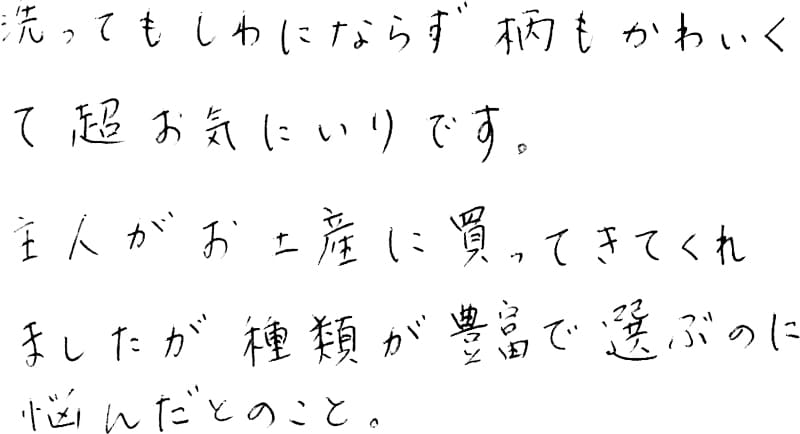 洗ってもしわにならず柄もかわいく
て超お気にいりです。
主人がお土産に買ってきてくれ
ましたが種類が豊富で選ぶのに
悩んだとのこと。